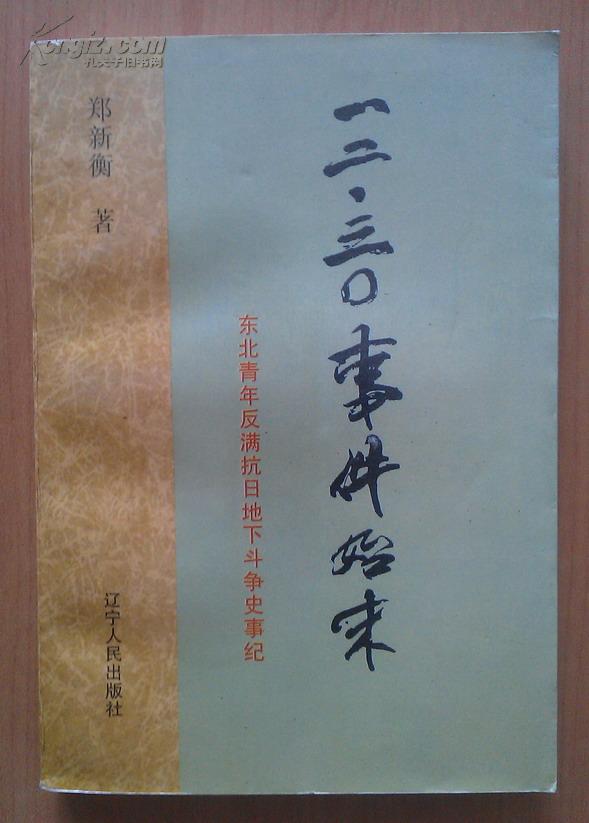 Kongfz.com
孔夫子旧书网
一二·三〇事件始末
东北青年反满抗日地下斗争史事纪
郑新衡 著
辽宁人民出版社